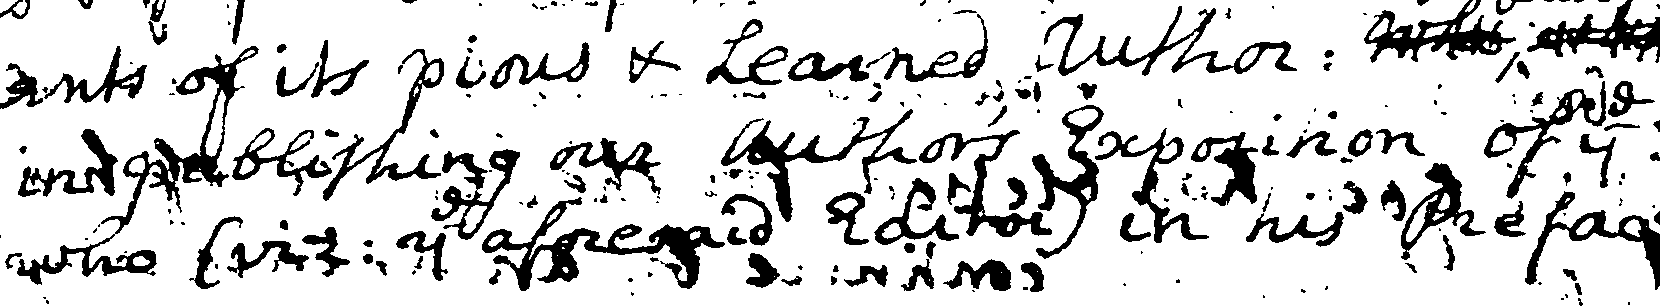 ents of its pious & Learned Author:
in publishing our Author's Exposition of ye
who (viz: ye aforesaid Editor) in his Preface